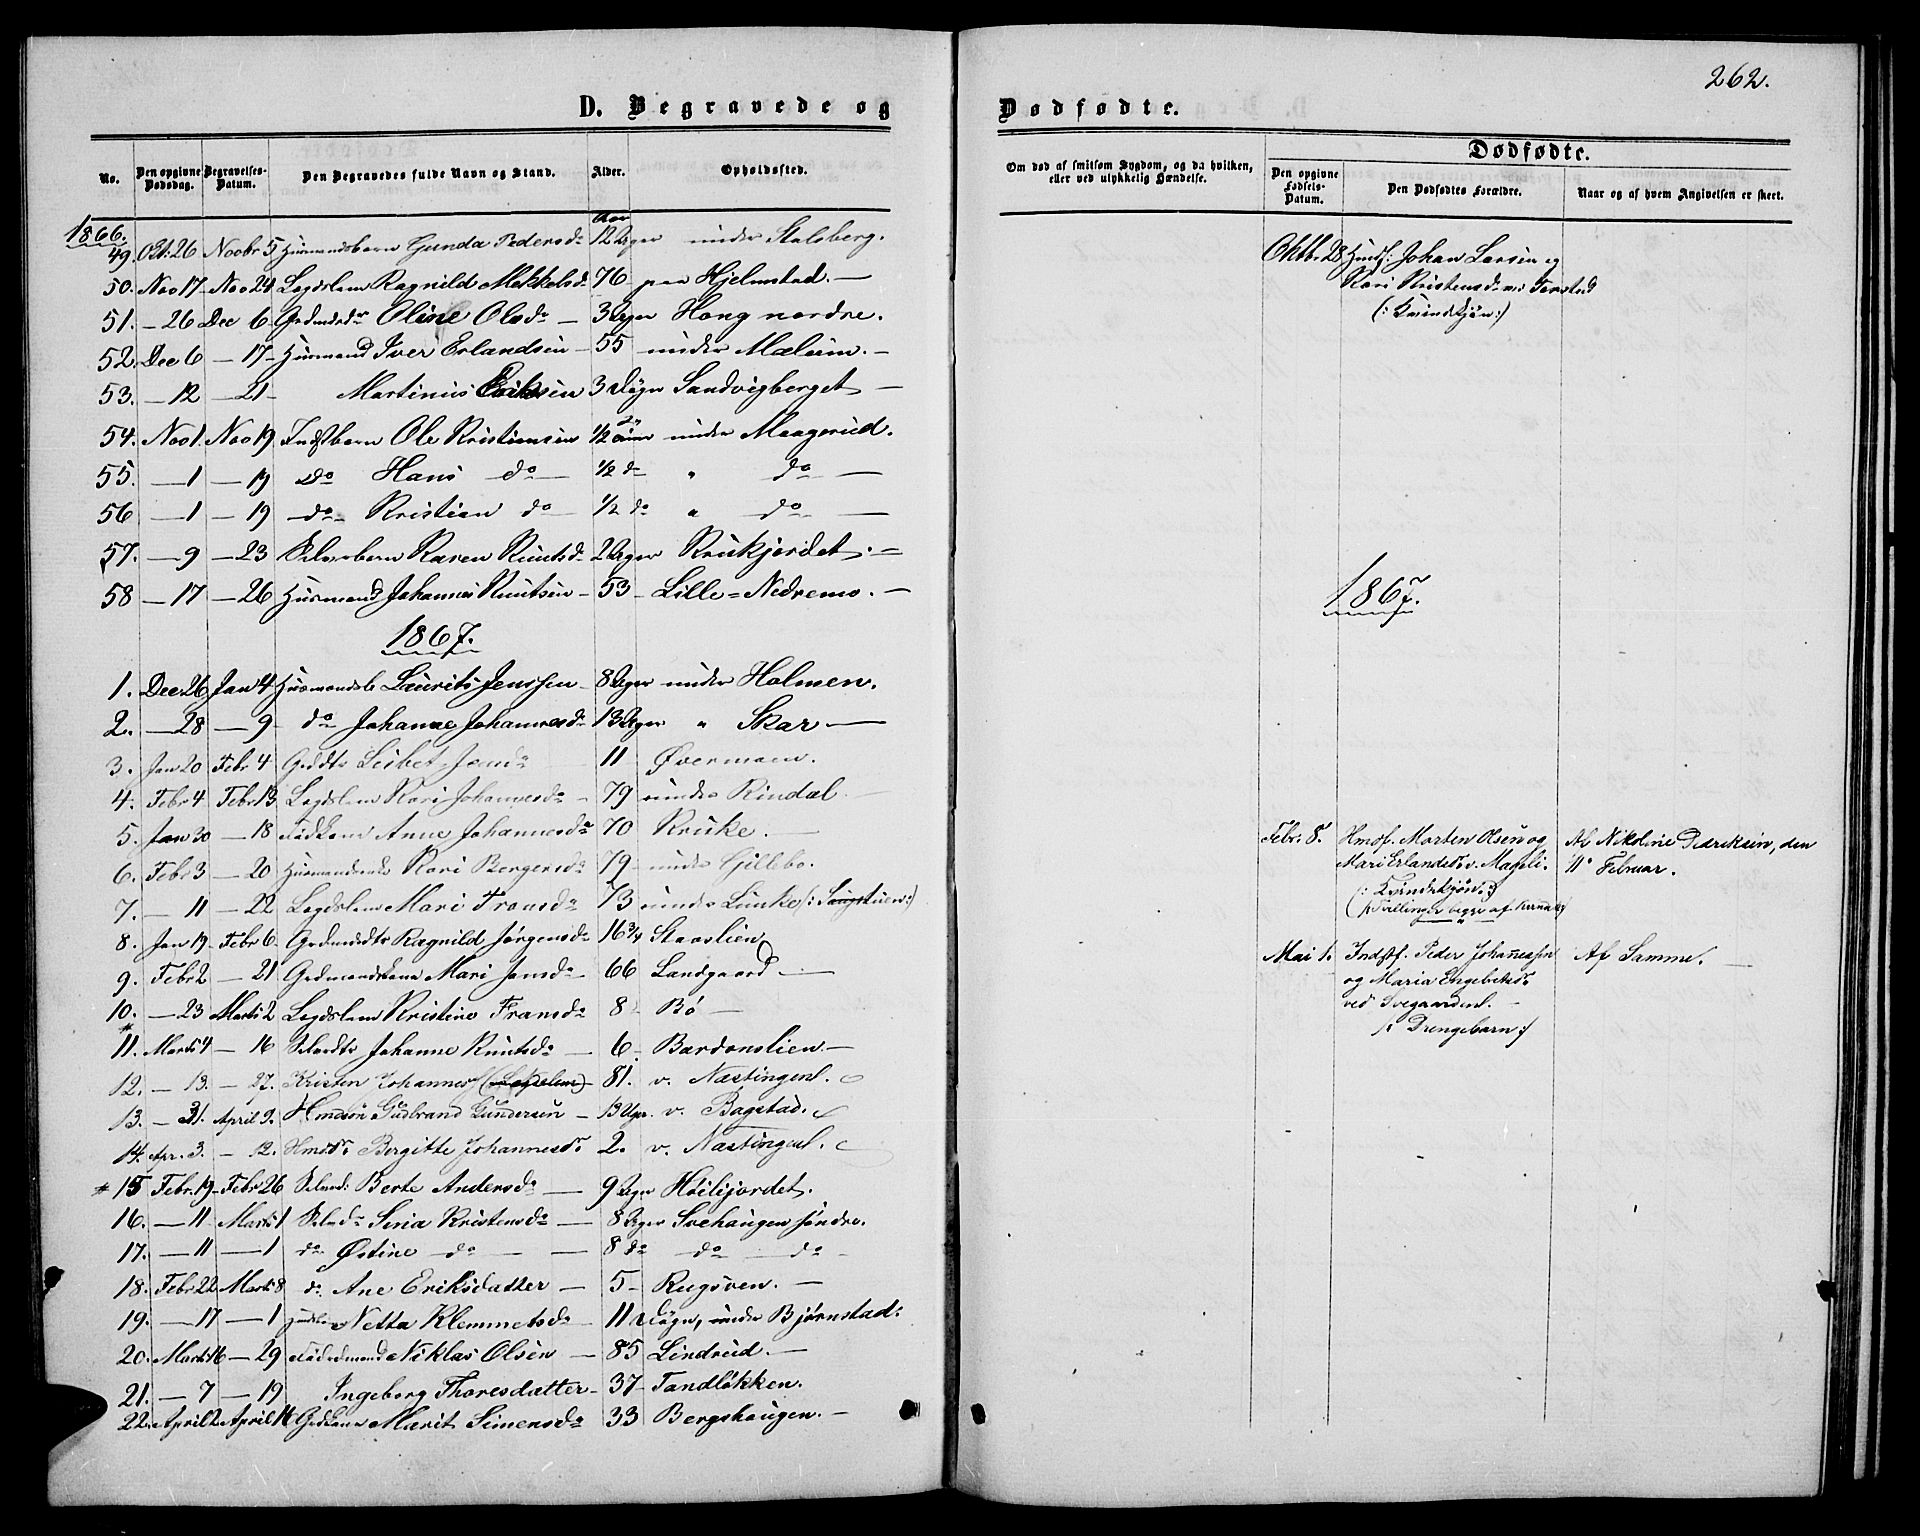 262.
D. Begravede og
Dødfødte.
No.
Den opgivne Dødsdag.
Begravelses-Datum.
Den Begravedes fulde Navn og Stand.
Alder.
Opholdssted.
Om død af smitsom Sygdom, og da hvilken, eller ved ulykkelig Hændelse.
Dødfødte.
Den opgivne Fødsels-Datum.
Den Dødfødtes Forældre.
Naar og af hvem Angivelsen er skeet.
1866.
49. Oct. 26 Novbr 5 Husmandsbarn Gunda Pedersdr 12 Uger under Stalsberg.
50. Nov 17 Nov 24 Lægdslem Ragnild Mikkelsdr 76 paa Hjelmstad. —
51. — 26 Dec 6 Oline Olsdr — 3 Uger Haug nordre.
52. Dec 6 — 17 Husmand Iver Erlandsen — 55 under Mælum. —
53. — 12 — 21 Martinus Eriksen 3 Døgn Sandvigberget —
54. Nov 1. Nov 19 Indstbarn Ole Kristiansen 1/2 under Maagerud.
55. — 1 — 19 do Hans do — 1/2 do " do —
56 — 1 — 19 do Kristian do — 1/2 do " do —
57. — 9 — 23 Karen Knutsdr 2 Uger Krukjordet. —
58 — 17 — 26 Husmand Johannes Knutsen — 53 — Lille-Nedremo. —
1867.
1. Dec 26 Jan 4 Husmandsb Laurits Jenssen — 8 Uger under Holmen.
2. — 28 — 9 do Johanne Johannesdr 13 Uger " Skar —
3. Jan 20 Febr 4 Lisbet 11 Øvermoen.
4. Febr 4 Febr 13 Lægdslem Kari Johannesdr — 79 under Rindal —
5. Jan 30 — 18 Anne Johannesdr 70 Kruke. —
6. Febr 3 — 20 Kari Bergersdr 79 — under Gillebo.
7. — 11 — 22 Lægdslem Mari Fransdr 73 under Lunke
8. Jan 19 Febr 6 Ragnild Jørgensdr 16 3/4 Staaslien
9. Febr 2 — 21 Mari Jensdr — 66 Landgaard —
10. — 23 Marts 2 Lægdslem Kristine Fransdr 8 Bø —
11. Marts 4 — 16 Johanne Knutsdr — 6 Bardonslien —
12. — 13. — 27. Kristen Johannes 81. v. Næstingenl.
13. — 31. April 9. Gudbrand Gundersen — 13 Uger. v. Bagstad.
14. Apr. 3. — 12. Bergitte Johannesdr 2. v. Næstingenl.
15 Febr. 19 Febr 26 Berte Andersdr — 9 Uger Høilijordet.
16. — 11 Marts 1 Siria Kristensdr — 8 Uger Svehaugen søndre.
17. — 11 — 1 do Østine do — 8 do do do
18. Febr 22 Marts 8 do Ane Eriksdatter — 5 — Rugsven. —
19. — 17 — 1 Netta Klemmetsdr — 11 Døgn, under Bjørnstad.
20. Marts 16 — 29 Niklas Olsen — 85 Lindrud. —
21. — 7 — 19 Ingeborg Thoresdatter — 37 Tandløkken.
22. April 2 April 14 Marit Simensdr 33 Bergshaugen. —
Oktb. 28 Johan Larsen og
Kari Kristensdr
(: Kvindekjøn :)
1867.
Febr. 8. Hmdf. Morten Olsen og
Mari Erlandsdr v. Mageli.
(: Kvindekjøn :)
(: Tvillinger begge af
Af Nikoline Didriksen, den
11. Februar.
Mai 1. Indstf. Peder Johannessen
og Maria Engebretsdr
ved
(: Drengebarn :)
Af Samme. —